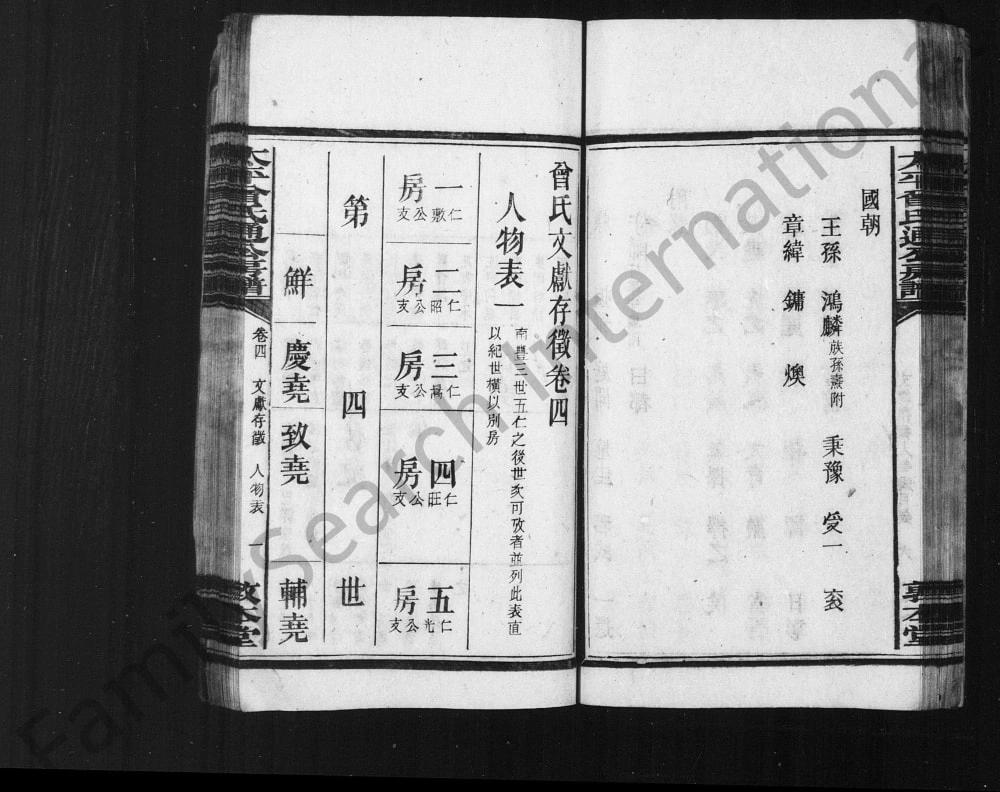 國朝
王孫 鴻麟族孫燾附 秉豫 受一 衮
章緯 鏞 煥
曾氏文獻存徵卷四
人物表一 南豐三世五仁之後世次可攷者並列此表直
以紀世橫以別房
一房仁敷公支 二房仁昭公支 三房仁暠公支 四房仁旺公支 五房仁光公支
第四世
鮮 慶堯 致堯 輔堯
太平曾氏通公房譜 卷四 文獻存徵 人物表 一 敦本堂
太平曾氏通公房譜
敦本堂
FamilySearch International